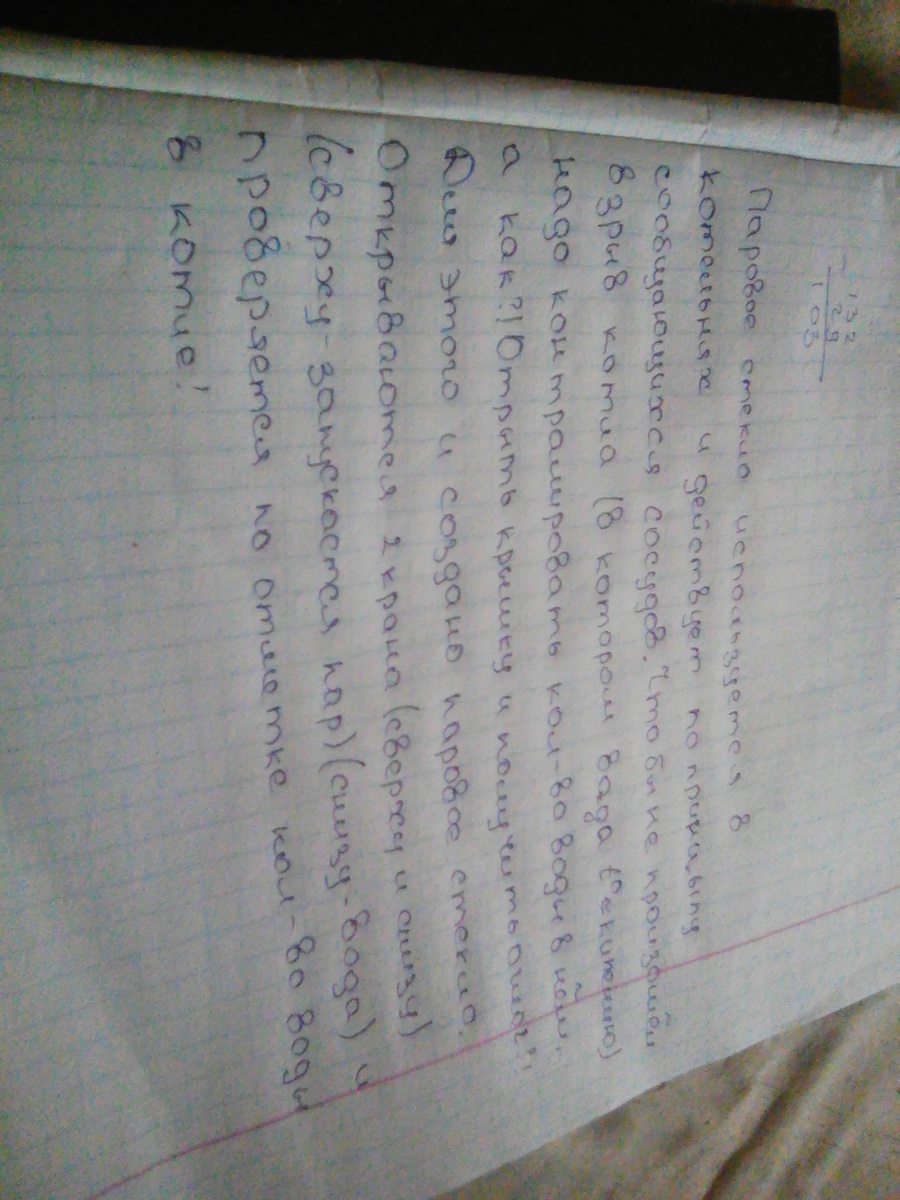 132
29
103
Паровое стекло используется в
котельнях и действует по принцыпу
сообщающихся сосудов. Что бы не произошёл
взрыв котла (в котором вада t°≈кипению)
надо контралировать кол-во воды в нём,
а как?! Отрыть крышку и получить ожог?!
Для этого и создано паровое стекло.
Открываются 2 крана (сверху и снизу)
(сверху-запускается пар) (снизу-вода) и
проверяется по отметке кол-во воды
в котле!